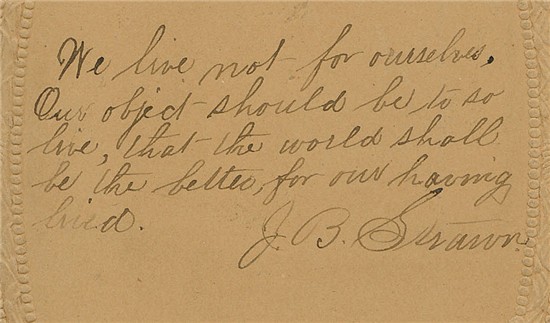 We live not for ourselves.
Our object should be to so
live, that the world shall
be the better, for our having
lived.
J. B. Strawn